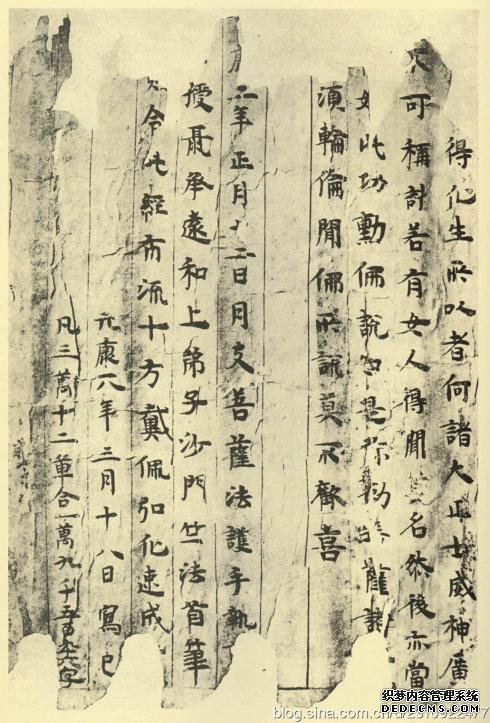 得化生所以者何諸大正士威神廣
不可稱計若有女人得聞名然後亦當
如此功勳佛說如是弥勒菩薩
須輪倫聞佛所說莫不歡喜
二年正月十二日月支菩薩法護手執
授聶承遠和上弟子沙門竺法首筆
令此經布流十方戴佩弘化速成
元康六年三月十八日寫已
凡三萬十二章合一萬九千五百九十六字
织梦内容管理系统
DEDECMS.COM
blog.sina.com.cn